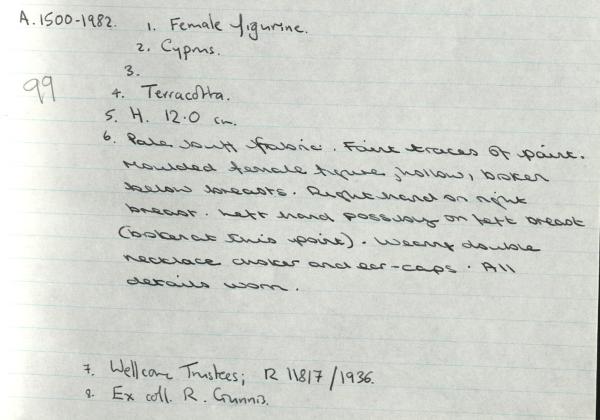 A.1500-1982. 1. Female figurine.
2. Cyprus.
3.
99
4. Terracotta.
5. H. 12.0 cm.
6. Pale buff fabric. Faint traces of paint.
Moulded female figure, hollow, broken
below breasts. Right hand on right
breast. Left hand possibly on left breast
(broken at this point). Wearing double
necklace choker and ear-caps. All
details worn.
7. Wellcome Trustees; R 11817/1936.
8. Ex coll. R. Gunnis.